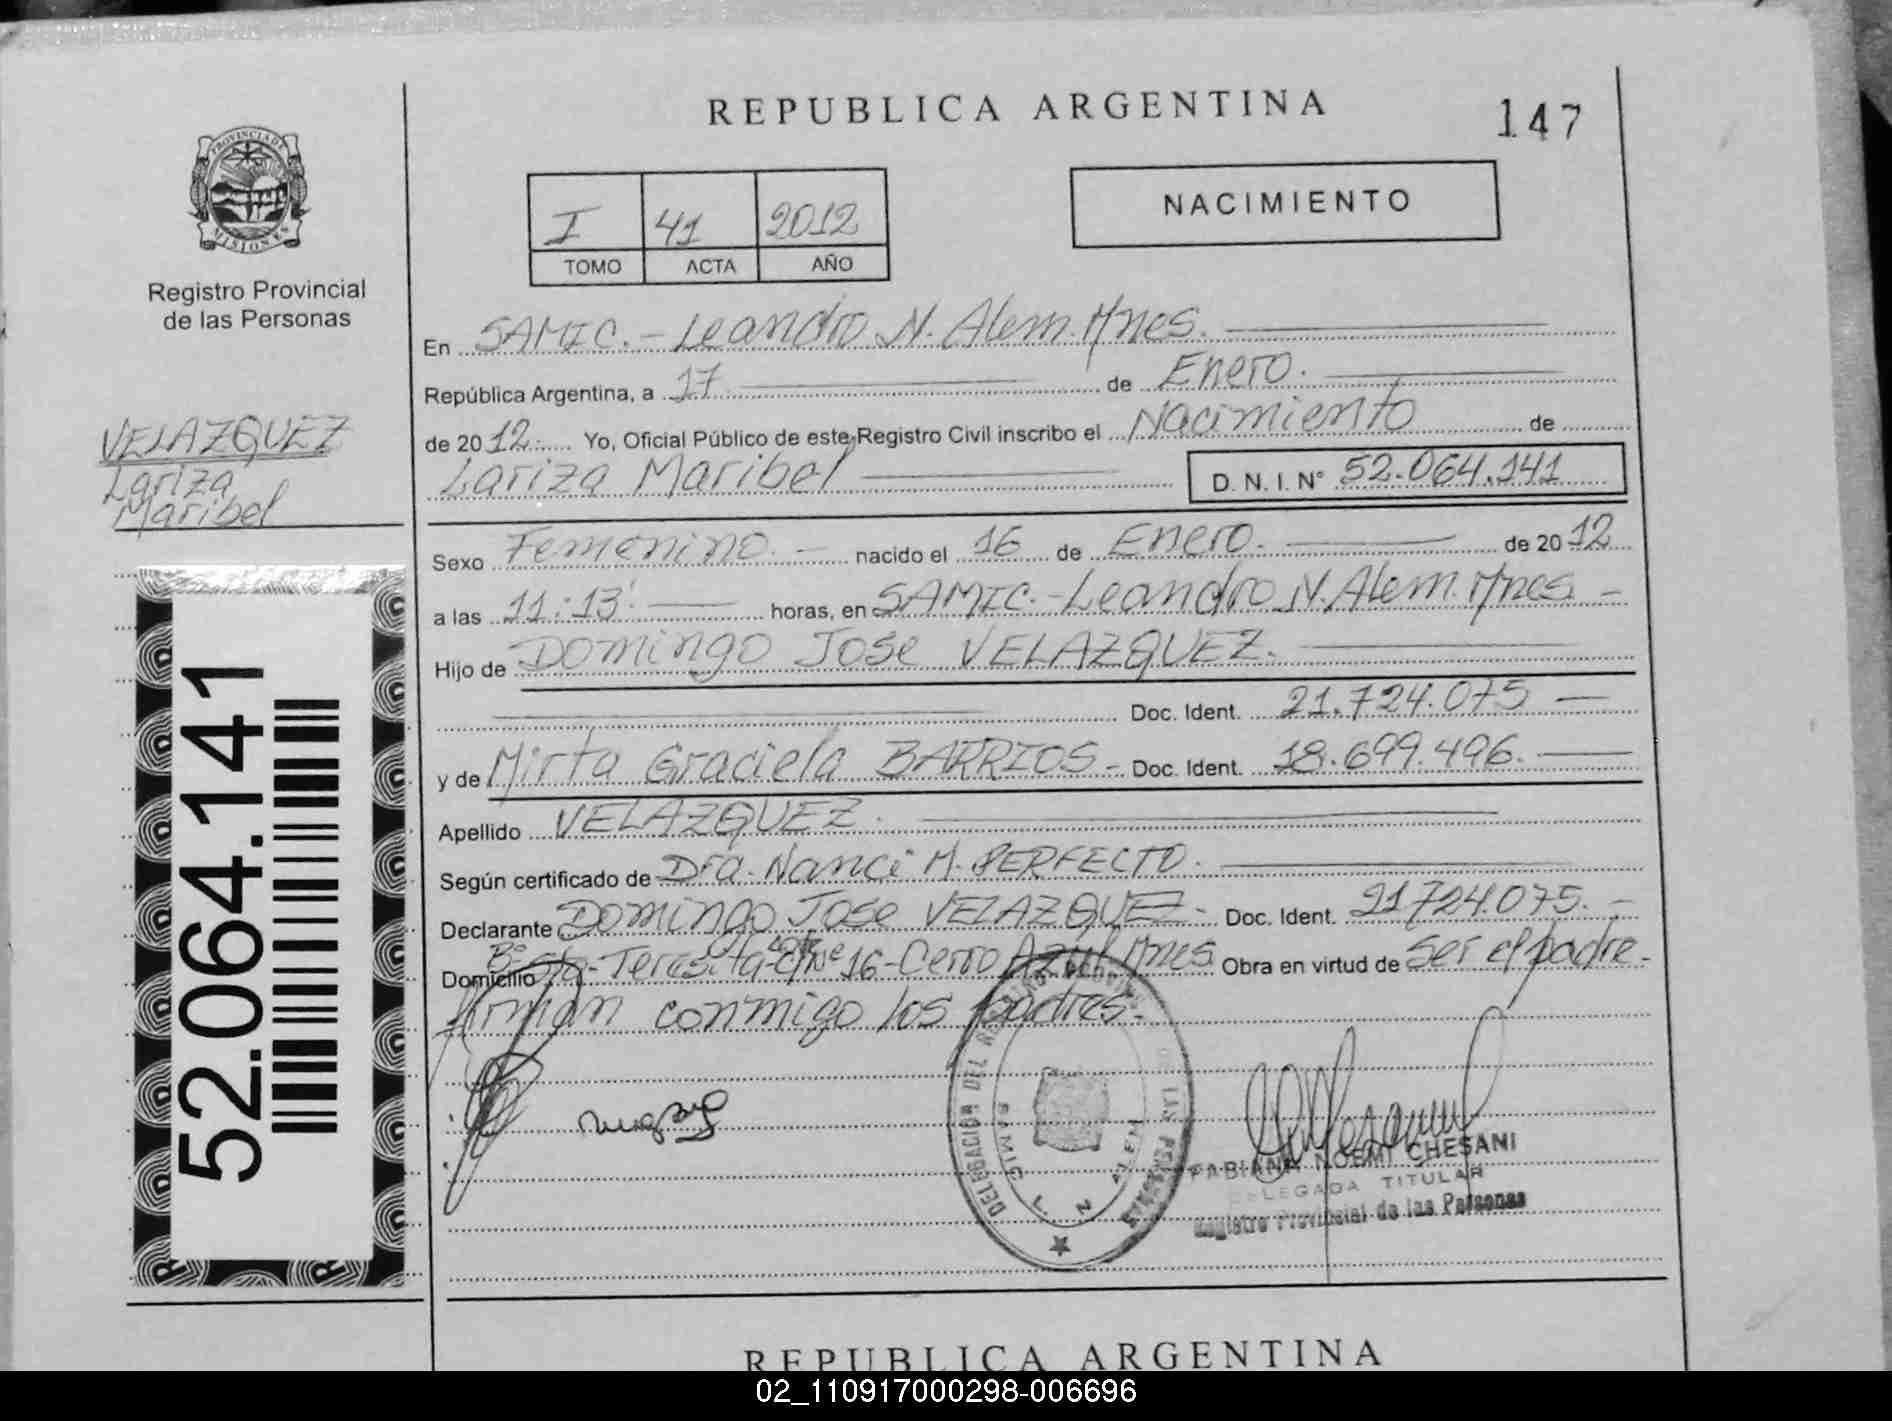 REPUBLICA ARGENTINA
147
PROVINCIA DE
MISIONES
Registro Provincial
de las Personas
I 41 2012
TOMO ACTA AÑO
NACIMIENTO
En SAMIC.- Leandro N. Alem. Mnes.
República Argentina, a 17 de Enero.
de 2012. Yo, Oficial Público de este Registro Civil inscribo el Nacimiento de
Lariza Maribel D. N. I. Nº 52.064.141
VELAZQUEZ
Lariza
Maribel
Sexo Femenino.- nacido el 16 de Enero. de 2012
a las 11:13 horas, en SAMIC.-Leandro N. Alem. Mnes.-
Hijo de Domingo Jose VELAZQUEZ.
Doc. Ident. 21.724.075
y de Mirta Graciela BARRIOS- Doc. Ident. 18.699.496.
Apellido VELAZQUEZ.
Según certificado de Dra. Nanci M. PERFECTO.
Declarante Domingo Jose VELAZQUEZ- Doc. Ident. 21724.075.-
Domicilio Bº Sta. Teresita 16-Cerro Azul. Mnes. Obra en virtud de ser el padre.-
firman conmigo los padres.-
52.064.141
DELEGACION DEL REGISTRO PROVINCIAL DE LAS PERSONAS
SAMIC L. N. ALEM
FABIANA NOEMI CHESANI
DELEGADA TITULAR
Registro Provincial de las Personas
REPUBLICA ARGENTINA
02_110917000298-006696